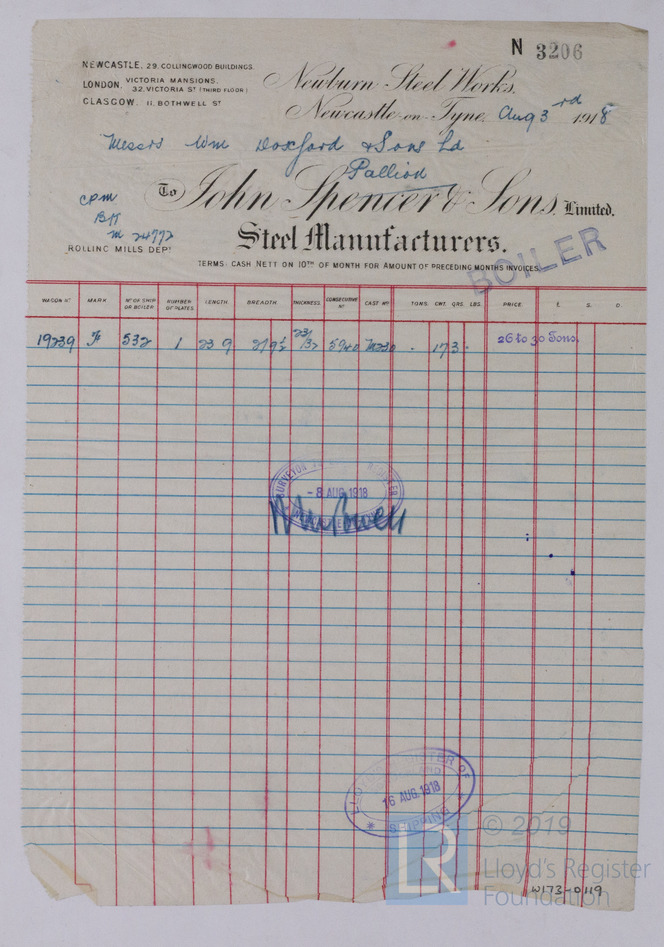 N 3206
NEWCASTLE, 29, COLLINGWOOD BUILDINGS.
LONDON, VICTORIA MANSIONS, 32, VICTORIA ST (THIRD FLOOR)
GLASGOW, 11, BOTHWELL ST
Newburn Steel Works,
Newcastle-on-Tyne, Aug 3rd 1918
Messrs Wm Doxford & Sons Ld
Pallion
To John Spencer & Sons, Limited.
Steel Manufacturers.
BK
M 24772
ROLLING MILLS DEPT
TERMS: CASH NETT ON 10TH OF MONTH FOR AMOUNT OF PRECEDING MONTHS INVOICES.
BOILER
WAGON No MARK. No OF SHIP OR BOILER. NUMBER OF PLATES LENGTH. BREADTH. THICKNESS. CONSECUTIVE No CAST No TONS. CWT. QRS. LBS. PRICE £ S. D.
19239 F 532 1 23 9 2/9½ 23/32 5940 17 3 26 to 30 Tons.
SURVEYOR
- 8 AUG. 1918
LLOYD'S REGISTER OF
AND
16 AUG. 1918
SHIPPING
LR
© 2019
Lloyd's Register
Foundation
W173-0119